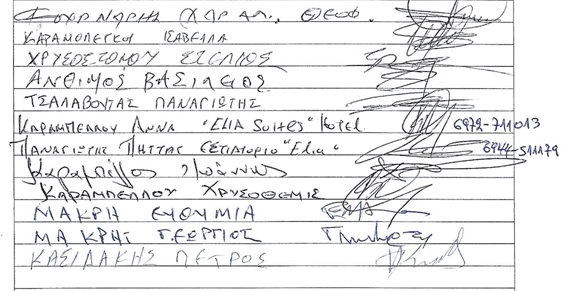 ΦΟΥΡΝΑΡΗΣ ΧΑΡΑΛ. ΘΕΟΦ.
ΚΑΡΑΜΠΕΓΚΟΥ ΙΣΑΒΕΛΛΑ
ΧΡΥΣΟΣΤΟΜΟΥ ΣΤΕΛΙΟΣ
ΑΝΘΙΜΟΣ ΒΑΣΙΛΕΙΟΣ
ΤΣΑΛΑΒΟΥΤΑΣ ΠΑΝΑΓΙΩΤΗΣ
ΚΑΡΑΜΠΕΛΛΟΥ ΑΝΝΑ "ELIA SUITES" HOTEL 6972-711013
ΠΑΝΑΓΙΩΤΗΣ ΠΗΤΤΑΣ ΕΣΤΙΑΤΟΡΙΟ "Elia" 6944-511179
Καραμπέλλος Ιωάννης
ΚΑΡΑΜΠΕΛΛΟΥ ΧΡΥΣΟΘΕΜΙΣ
ΜΑΚΡΗ ΕΥΘΥΜΙΑ
ΜΑΚΡΗΣ ΓΕΩΡΓΙΟΣ
ΚΑΣΙΔΑΚΗΣ ΠΕΤΡΟΣ